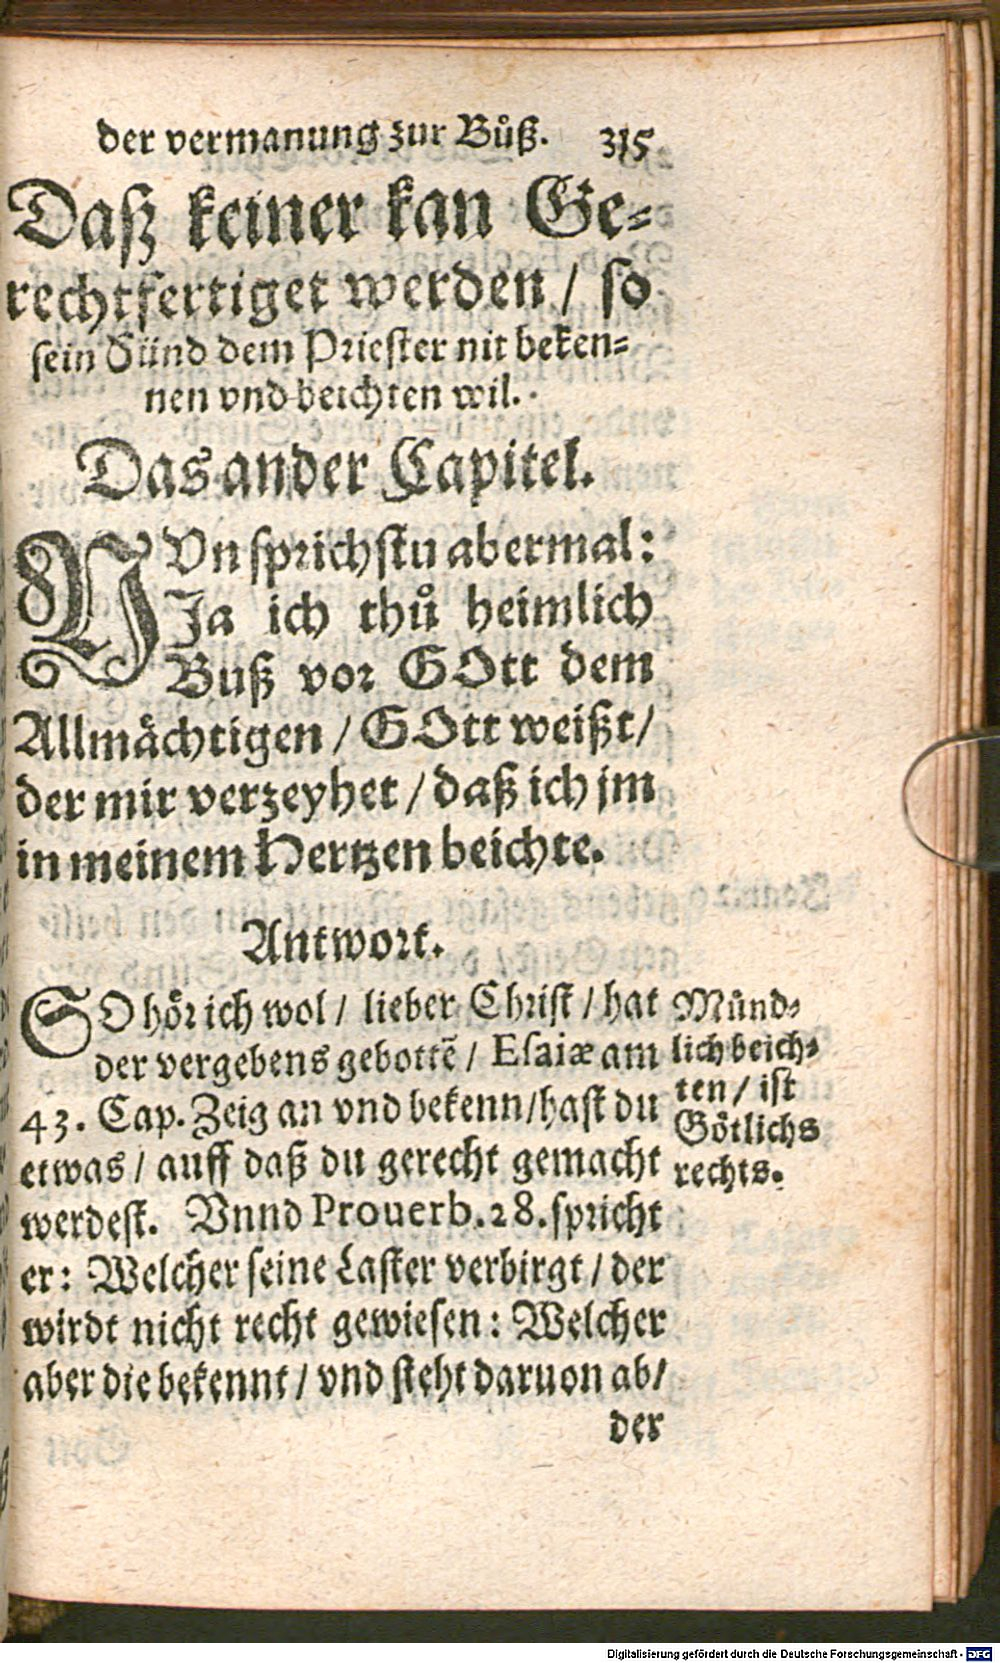 der vermanung zur Bůß. 315
Daß keiner kan Ge-
rechtfertiget werden / so
sein Sünd dem Priester nit beken-
nen vnd beichten wil.
Das ander Capitel.
NVn sprichstu abermal:
Ja ich thů heimlich
Buß vor GOtt dem
Allmächtigen / GOtt weißt /
der mir verzeyhet / daß ich jm
in meinem Hertzen beichte.
Antwort.
SO hör ich wol / lieber Christ / hat
der vergebens gebottẽ / Esaiæ am
43. Cap. Zeig an vnd bekenn / hast du
etwas / auff daß du gerecht gemacht
werdest. Vnnd Prouerb. 28. spricht
er: Welcher seine Laster verbirgt / der
wirdt nicht recht gewiesen: Welcher
aber die bekennt / vnd steht daruon ab /
der
Münd-
lich beich-
ten / ist
Götlichs
rechts.
Digitalisierung gefördert durch die Deutsche Forschungsgemeinschaft - DFG